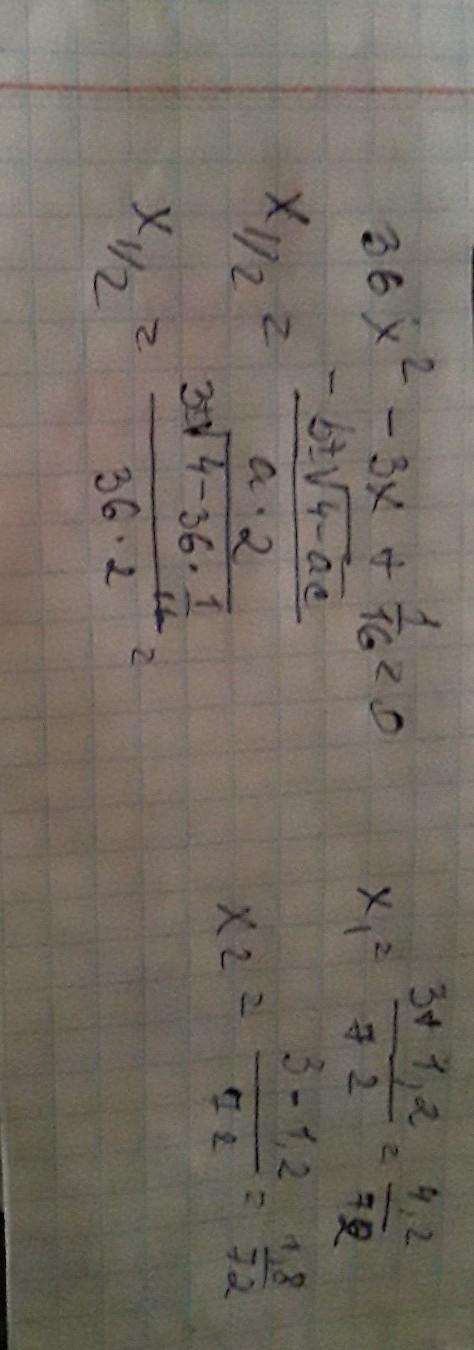 36x² - 3x + 1/16 = 0
x1/2 = (-b±√4-ac)/(a·2)
x1/2 = (3±√4-36·1/16)/(36·2) =
x1 = (3+1,2)/72 = 4,2/72
x2 = (3-1,2)/72 = 1,8/72